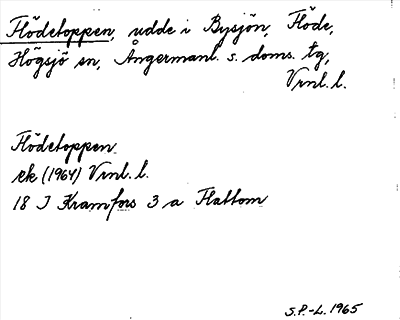 Flödetoppen, udde i Bysjön, Flöde,
Högsjö sn, Ångermanl. s. doms. tg,
Vrnl. l.
Flödetoppen
ek (1964) Vrnl. l.
18 I Kramfors 3 a Flattom
S.P.-L. 1965